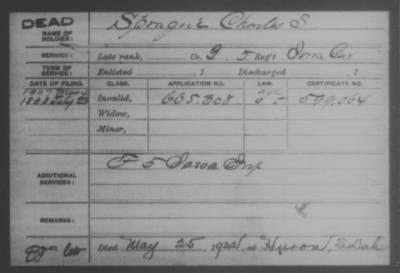 DEAD
NAME OF SOLDIER: Sprague Charles S
SERVICE: Late rank, Co. G, 5 Reg't Iowa Cav
TERM OF SERVICE: Enlisted , 1 Discharged , 1
DATE OF FILING. CLASS. APPLICATION NO. LAW. CERTIFICATE NO.
1907
1888 July 23 Invalid, 665.308 579,064
Widow,
Minor,
ADDITIONAL SERVICES: F 5 Iowa Inf
REMARKS:
Died May 25, 1922, at Huron, S Dak